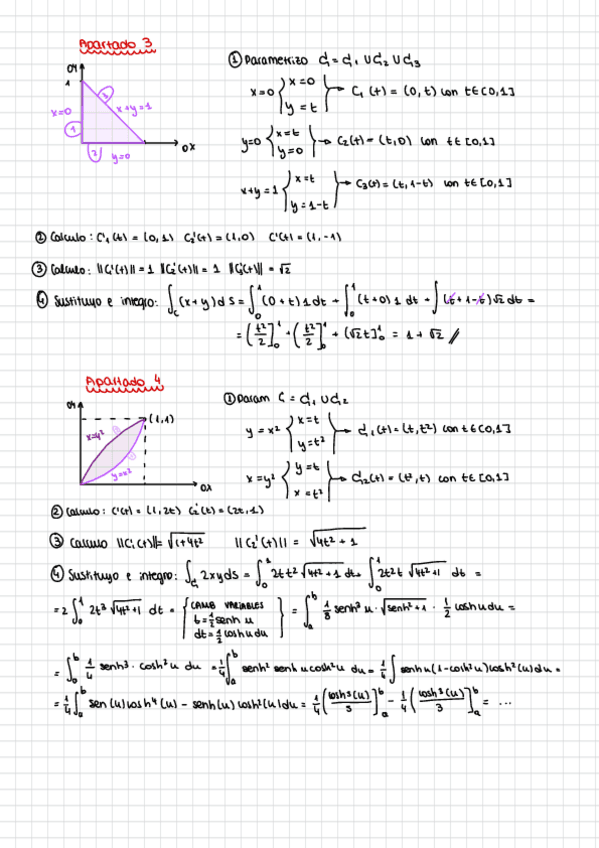 Apartado 3
① Parametrizo C = C₁ ∪ C₂ ∪ C₃
OY
1
x=0
x+y=1
3
1
2
y=0
OX
x=0 { x=0 y=t } → C₁(t) = (0,t) con t∈[0,1]
y=0 { x=t y=0 } → C₂(t) = (t,0) con t∈[0,1]
x+y=1 { x=t y=1-t } → C₃(t) = (t,1-t) con t∈[0,1]
② Calculo: C₁'(t) = (0,1) C₂'(t) = (1,0) C'(t) = (1,-1)
③ Calculo: ||C₁'(t)|| = 1 ||C₂'(t)|| = 1 ||C₃'(t)|| = √2
④ Sustituyo e integro: ∫_C (x+y) dS = ∫₀¹ (0+t) 1 dt + ∫₀¹ (t+0) 1 dt + ∫ (t+1-t) √2 dt =
= (t²/2]₀¹ + (t²/2]₀¹ + (√2t]₀¹ = 1 + √2 //
Apartado 4
① Param C = C₁ ∪ C₂
OY
(1,1)
x=y²
y=x²
OX
y=x² { x=t y=t² } → C₁(t) = (t,t²) con t∈[0,1]
x=y² { y=t x=t² } → C₂(t) = (t²,t) con t∈[0,1]
② Calculo: C'(t) = (1,2t) C₂'(t) = (2t,1)
③ Calculo ||C₁'(t)|| = √(1+4t²) ||C₂'(t)|| = √(4t²+1)
④ Sustituyo e integro: ∫_C 2xy ds = ∫₀¹ 2t t² √(4t²+1) dt + ∫₀¹ 2t² t √(4t²+1) dt =
= 2 ∫₀¹ 2t³ √(4t²+1) dt = { CAMB VARIABLES t = ½ senh u dt = ½ cosh u du } = ∫ₐᵇ 1/8 senh³ u · √(senh²+1) · ½ cosh u du =
= ∫ₐᵇ ¼ senh³ · cosh² u du = ¼ ∫ₐᵇ senh² senh u cosh² u du = ¼ ∫ senh u (1-cosh² u) cosh² (u) du =
= ¼ ∫ₐᵇ sen (u) cosh⁴ (u) - senh (u) cosh² (u) du = ¼ (cosh⁵(u)/5]ₐᵇ - ¼ (cosh³(u)/3]ₐᵇ = ...